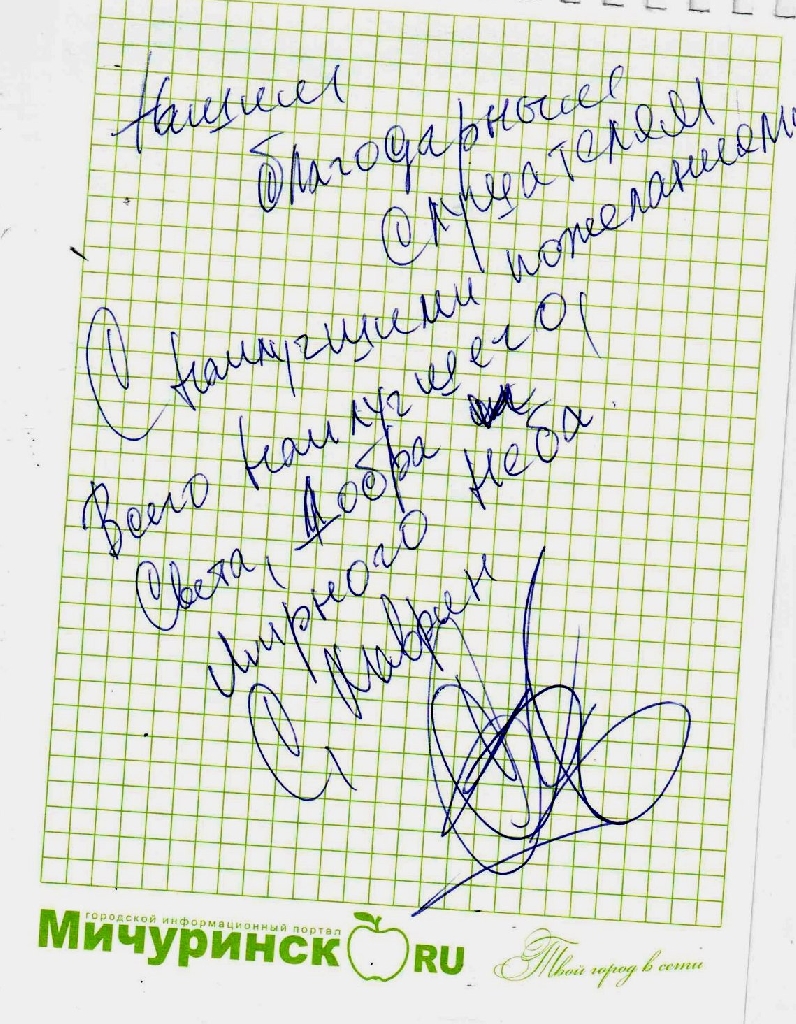 Нашим
благодарным
слушателям
С наилучшими пожеланиями
Всего наилучшего,
Света, Добра
мирного неба
С,
городской информационный портал
Мичуринск RU
Твой город в сети